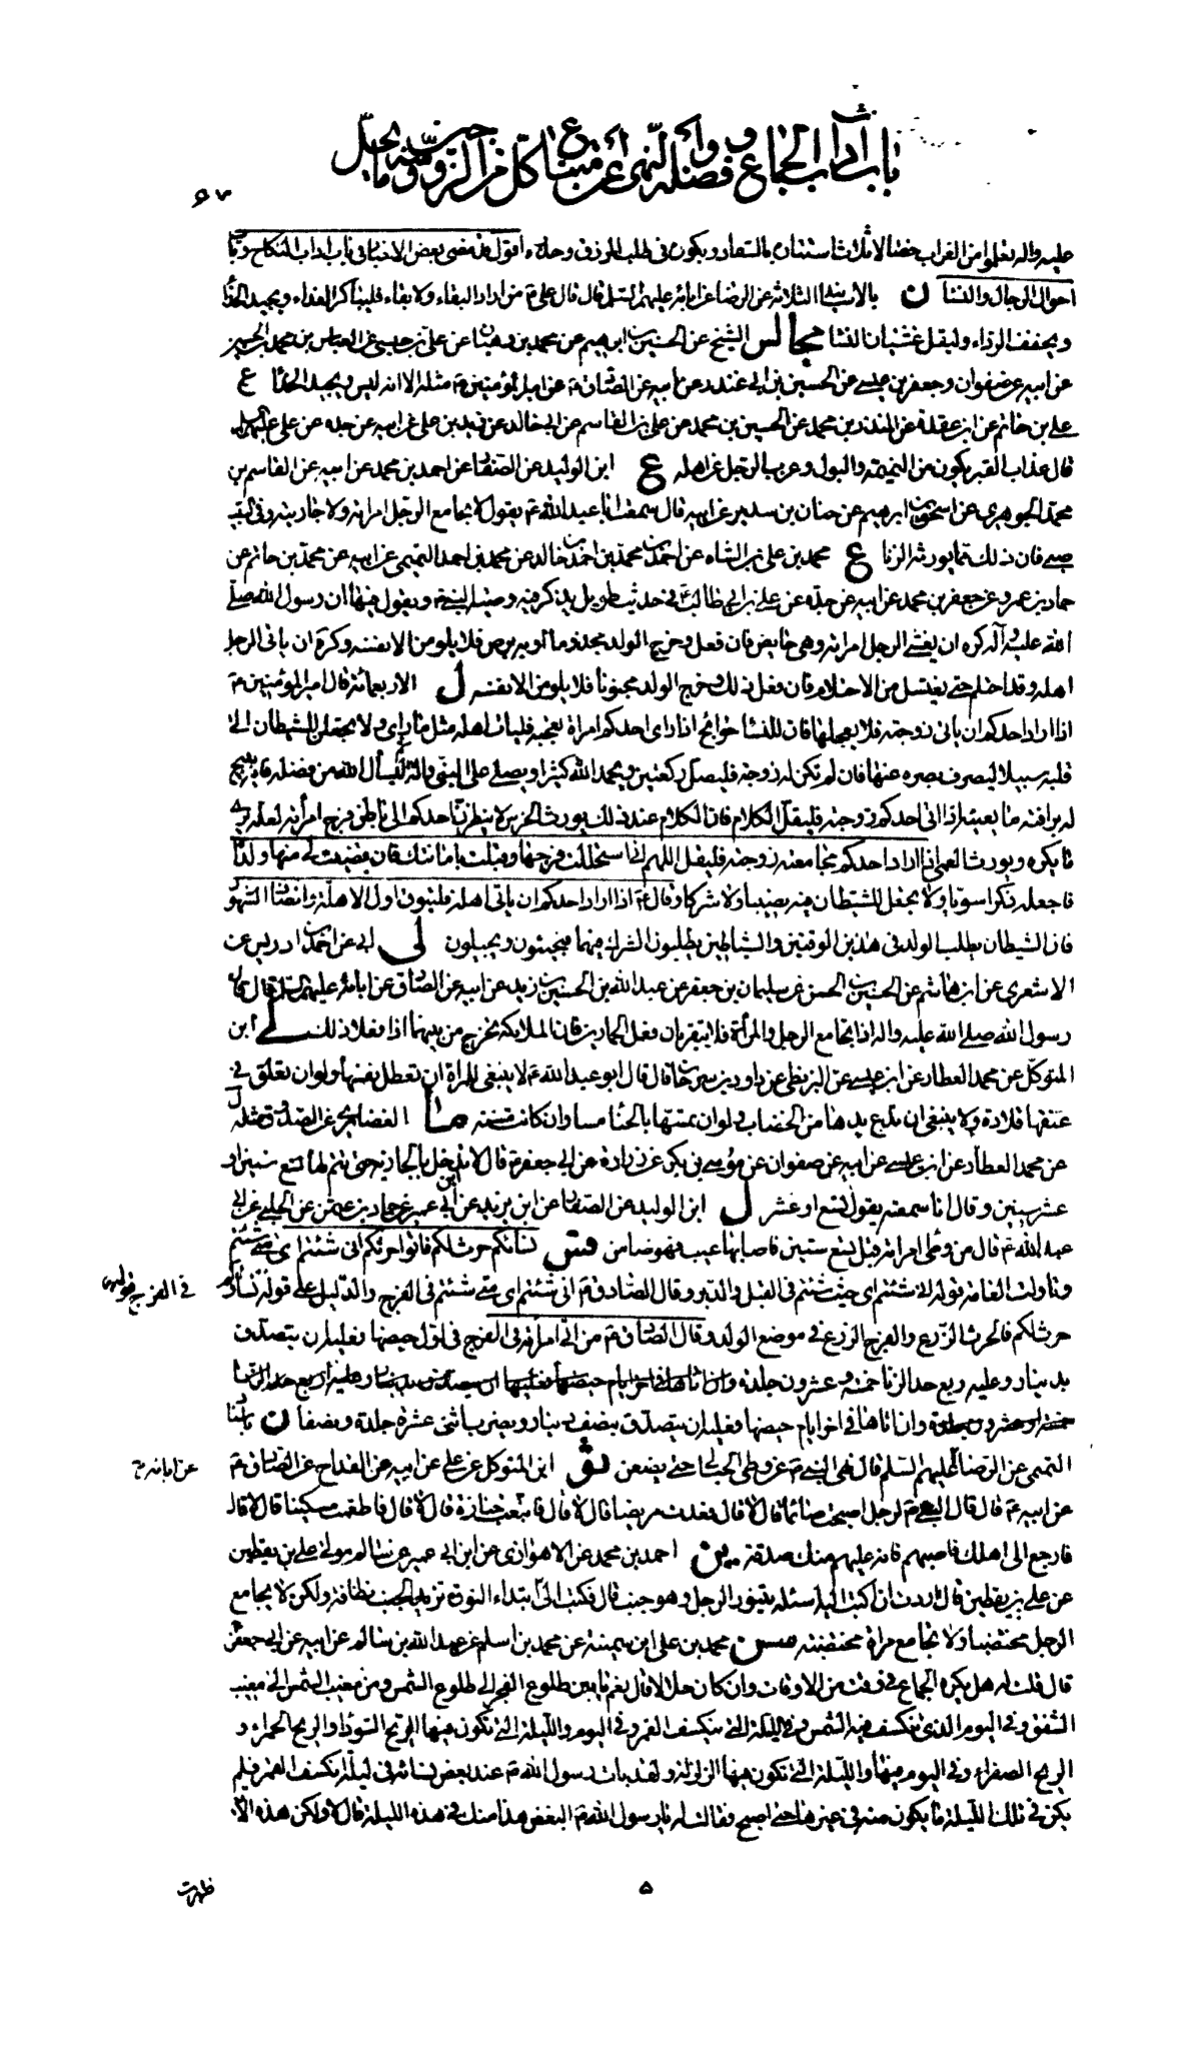 باب آداب الجماع وفضله والنهي عن امتناع كل من الزوجين وما يحل
٦٧
عليه واله تعلموا من الغراب خصالا ثلاثا استتاره بالسفاد وبكوره في طلب الرزق وحذره أقول قد مضى بعض الاخبار في باب اداب النكاح وباب
احوال الرجال والنساء ن بالاسانيد الثلاثة عن الرضا عن ابائه عليهم السلم قال قال علي ع من اراد البقاء ولا بقاء فليباكر الغداء ويجيد الحذاء
ويخفف الرداء وليقل غشيان النساء مجالس الشيخ عن الحسين بن ابرهيم عن محمد بن وهبان عن علي بن حبشي عن العباس بن محمد بن الحسين
عن ابيه عن صفوان وجعفر بن عيسى عن الحسين بن ابي غندر عن ابيه عن الصادق ع عن امير المؤمنين ع مثله الا انه ليس ويجيد الحذاء ع
علي بن حاتم عن ابن عقدة عن المنذر بن محمد عن الحسين بن محمد عن علي بن القاسم عن ابي خالد عن زيد بن علي عن ابيه عن جده عن علي عليه السلم
قال عذاب القبر يكون من النميمة والبول وعزب الرجل عن اهله ع ابن الوليد عن الصفار عن احمد بن محمد عن ابيه عن القاسم بن
محمد الجوهري عن اسحق بن ابرهيم عن حنان بن سدير عن ابيه قال سمعت ابا عبد الله ع يقول لا يجامع الرجل امراته ولا جاريته وفي البيت
صبي فان ذلك مما يورث الزنا ع محمد بن علي بن الشاه عن احمد بن محمد بن احمد بن خالد عن محمد بن احمد التميمي عن ابيه عن محمد بن حاتم عن
حماد بن عمرو عن جعفر بن محمد عن ابيه عن جده عن علي بن ابي طالب ع في حديث طويل يذكر فيه وصية النبي ص ويقول فيها ان رسول الله صلى
الله عليه وآله كره ان يغشى الرجل امراته وهي حايض فان فعل وخرج الولد مجذوما او به برص فلا يلومن الا نفسه وكره ان ياتي الرجل
اهله وقد احتلم حتى يغتسل من الاحتلام فان فعل ذلك وخرج الولد مجنونا فلا يلومن الا نفسه ل الاربعمائة قال امير المؤمنين ع
اذا اراد احدكم ان ياتي زوجته فلا يعجلها فان للنساء حوائج اذا راى احدكم امراة تعجبه فليات اهله فان عند اهله مثل ما راى ولا يجعلن للشيطان الى
قلبه سبيلا ليصرف بصره عنها فان لم تكن له زوجة فليصل ركعتين ويحمد الله كثيرا ويصلي على النبي واله ثم ليسأل الله من فضله فانه يبيح
له برافته ما يغنيه اذا اتى احدكم زوجته فليقل الكلام فان الكلام عند ذلك يورث الخرس لا ينظرن احدكم الى باطن فرج امرأته لعله يرى
ما يكره ويورث العمى اذا اراد احدكم مجامعة زوجته فليقل اللهم اني استحللت فرجها وقبلت بامانتك فان قضيت لي منها ولدا
فاجعله ذكرا سويا ولا تجعل للشيطان فيه نصيبا ولا شركا وقال ع اذا اراد احدكم ان ياتي اهله فليتوق اول الاهلة وانصاف الشهور
فان الشيطان يطلب الولد في هذين الوقتين والشياطين يطلبون الشرك فيهما فيجيئون ويحبلون لى ابي عن احمد بن ادريس عن
الاشعري عن ابن هاشم عن الحسين بن الحسن عن سليمان بن جعفر عن عبد الله بن الحسين بن زيد عن ابيه عن الصادق عن ابائه عليهم السلم قال قال
رسول الله صلى الله عليه واله اذا تجامع الرجل والمرأة فلا يتعريان فعل الحمارين فان الملائكة تخرج من بينهما اذا فعلا ذلك لى ابن
المتوكل عن محمد العطار عن ابن عيسى عن البزنطي عن داود بن سرحان قال قال ابو عبد الله ع لا ينبغي للمراة ان تعطل نفسها ولو ان تعلق في
عنقها قلادة ولا ينبغي ان تدع يدها من الخضاب ولو ان تمسها بالحناء مسا وان كانت مسنة ما الغضائري عن الصدوق مثله ل
عن محمد العطار عن ابن عيسى عن ابيه عن صفوان عن موسى بن بكر عن زرارة عن ابي جعفر ع قال لا تدخل بالجارية حتى يتم لها تسع سنين او
عشر سنين وقال انا سمعته يقول تسع او عشر ل ابن الوليد عن الصفار عن ابن يزيد عن ابن ابي عمير عن حماد بن عثمن عن الحلبي عن ابي
عبد الله ع قال من وطى امراته قبل تسع سنين فاصابها عيب فهو ضامن فس نسائكم حرث لكم فاتوا حرثكم انى شئتم اي متى شئتم
وتاولت العامة قوله انى شئتم اي حيث شئتم في القبل والدبر وقال الصادق ع انى شئتم اي متى شئتم في الفرج والدليل على قوله نساؤكم في الفرج قوله
حرث لكم فالحرث الزرع والفرج الزرع في موضع الولد وقال الصادق ع من اتى امراته في الفرج في اول حيضها فعليه ان يتصدق
بدينار وعليه ربع حد الزنا خمسة وعشرون جلدة وان اتاها في اخر ايام حيضها فعليه ان يتصدق بدينار وعليه ربع حد الزنا
خمسة وعشرون جلدة وان اتاها في اخر ايام حيضها فعليه ان يتصدق بنصف دينار ويضرب اثنى عشرة جلدة ونصفا ن باسناد
التميمي عن الرضا عن ابائه ع عليهم السلم قال نهى النبي ص عن وطي الحبالى حتى يضعن ثو ابن المتوكل عن علي عن ابيه عن القداح عن الصادق ع
عن ابيه ع قال قال النبي ص لرجل اصبحت صائما قال لا قال فعدت مريضا قال لا قال فاتبعت جنازة قال لا قال فاطعمت مسكينا قال لا قال
فارجع الى اهلك فاصبهم فانه عليهم منك صدقة ين احمد بن محمد عن الاهوازي عن ابن ابي عمير عن سالم مولى علي بن يقطين
عن علي بن يقطين قال اردت ان اكتب اليه اسئله يتنور الرجل وهو جنب قال فكتب الي ابتداء النورة تزيد الجنب نظافة ولكن لا يجامع
الرجل مختضبا ولا تجامع مراة مختضبة سن محمد بن علي ابن سمينة عن محمد بن اسلم عن عبد الله بن سالم عن ابيه عن ابي جعفر
قال قلت له هل يكره الجماع في وقت من الاوقات وان كان حلالا قال نعم ما بين طلوع الفجر الى طلوع الشمس ومن مغيب الشمس الى مغيب
الشفق وفي اليوم الذي تنكسف فيه الشمس وفي الليلة التي ينكسف القمر وفي اليوم والليلة التي تكون فيها الريح السوداء والريح الحمراء و
الريح الصفراء وفي اليوم والليلة التي تكون فيها الزلزلة ولقد بات رسول الله ص عند بعض نسائه في ليلة انكسف القمر فلم
يكن في تلك الليلة ما يكون منه في غيرها حتى اصبح فقالت له يا رسول الله ص البغض هذا منك في هذه الليلة قال لا ولكن هذه الاية
٥
ظهرت